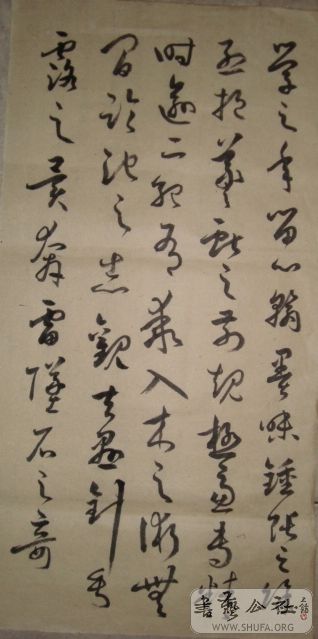 學之年留心翰墨味鍾張之餘
烈挹羲獻之前規極慮專精
時逾二紀有乖入木之術無
間臨池之志觀夫懸針垂
露之異奔雷墜石之奇
書藝公社
WWW.SHUFA.ORG